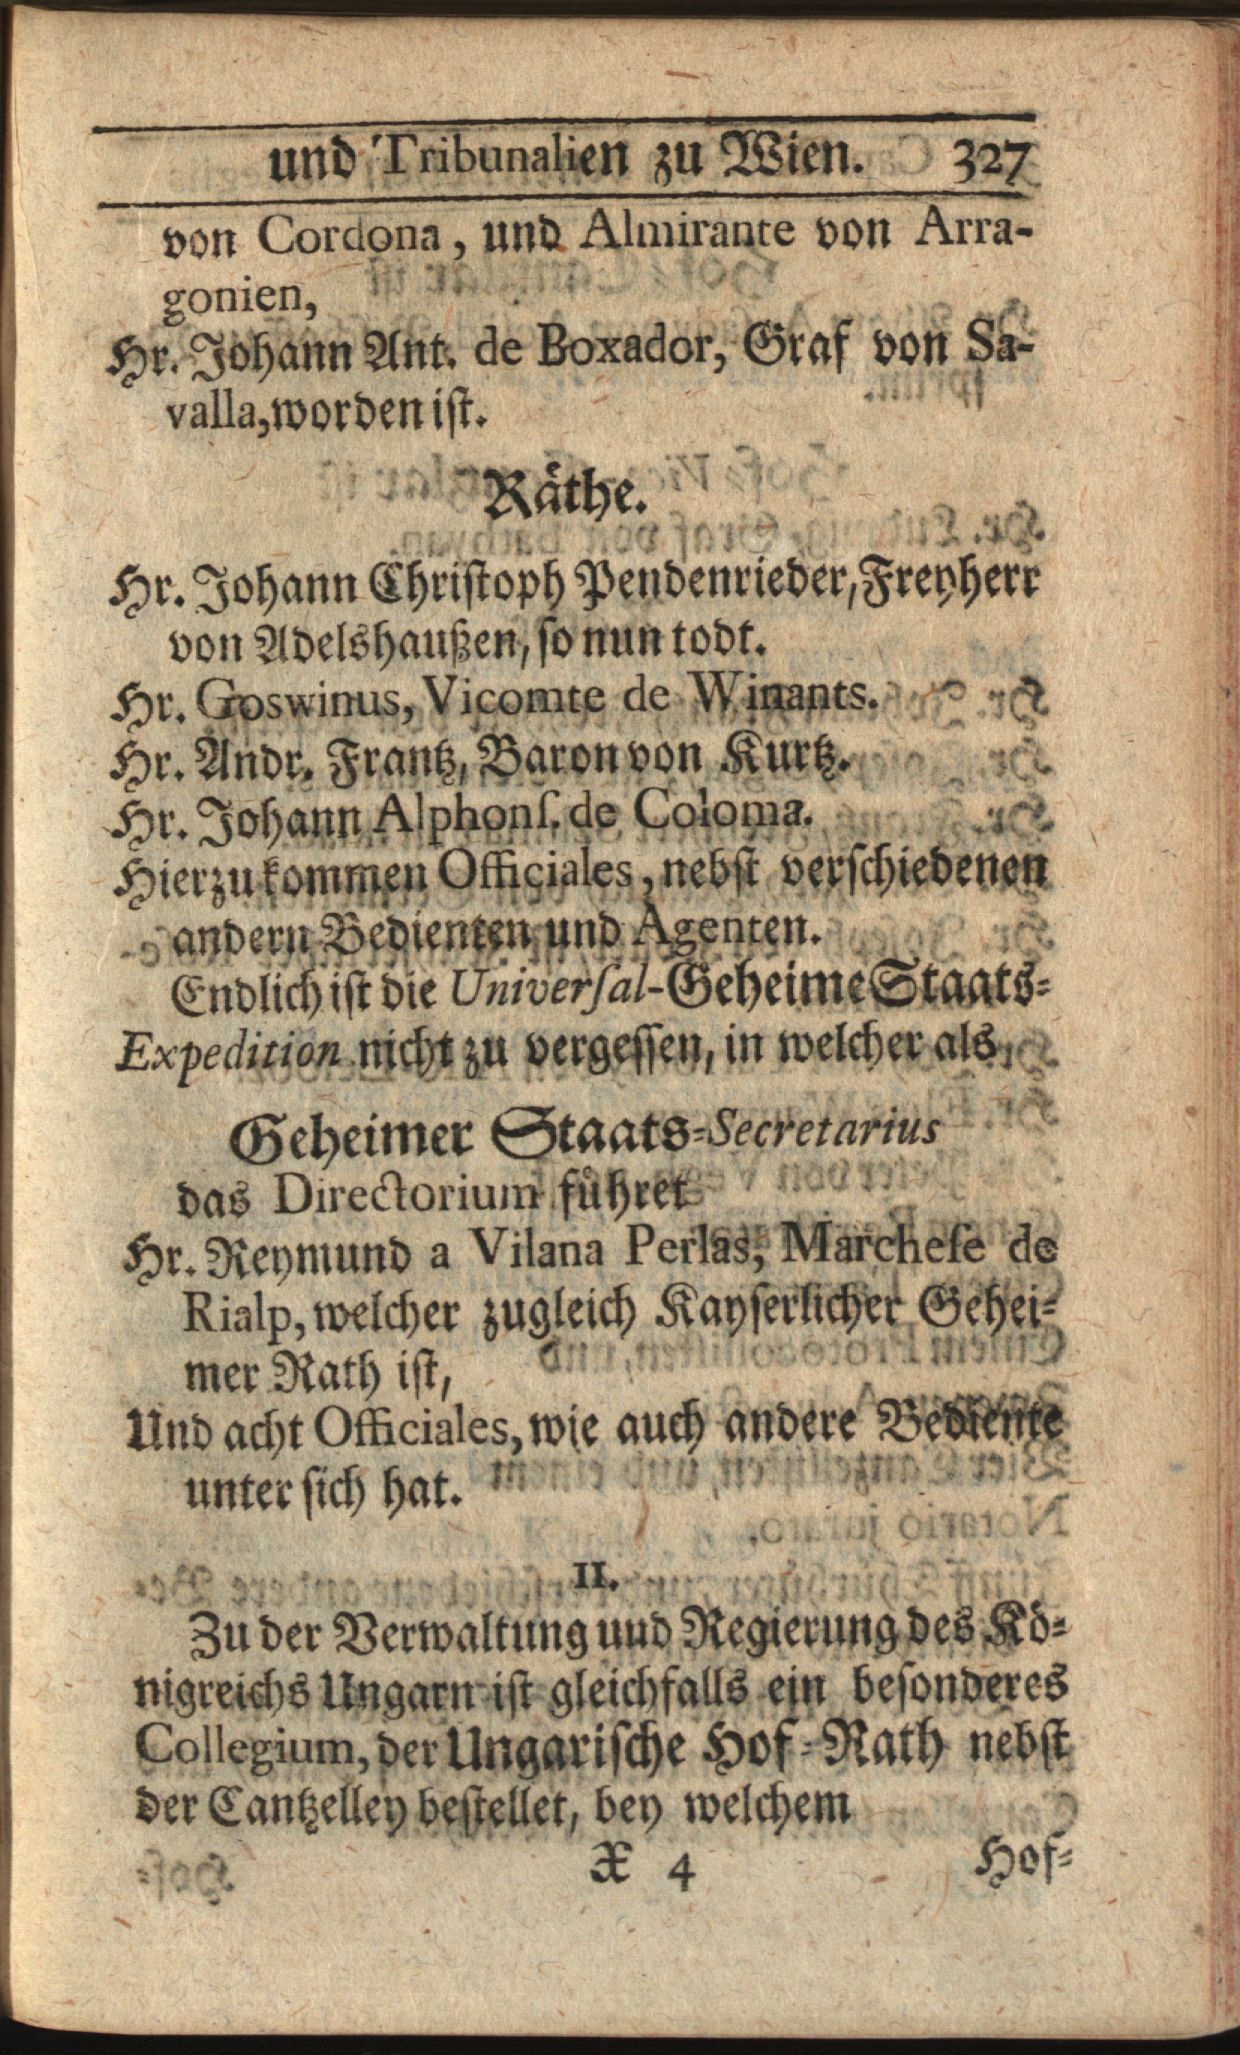 und Tribunalien zu Wien. 327
von Cordona, und Almirante von Arra-
gonien,
Hr. Johann Ant. de Boxador, Graf von Sa-
valla, worden ist.
Räthe.
Hr. Johann Christoph Pendenrieder, Freyherr
von Adelshaußen, so nun todt.
Hr. Goswinus, Vicomte de Winants.
Hr. Andr. Frantz, Baron von Kurtz.
Hr. Johann Alphonſ. de Coloma.
Hierzu kommen Officiales, nebst verschiedenen
andern Bedienten und Agenten.
Endlich ist die Univerſal-Geheime Staats-
Expedition nicht zu vergessen, in welcher als
Geheimer Staats-Secretarius
das Directorium führet
Hr. Reymund a Vilana Perlas, Marcheſe de
Rialp, welcher zugleich Kayserlicher Gehei-
mer Rath ist,
Und acht Officiales, wie auch andere Bediente
unter sich hat.
II.
Zu der Verwaltung und Regierung des Kö-
nigreichs Ungarn ist gleichfalls ein besonderes
Collegium, der Ungarische Hof-Rath nebst
der Cantzelley bestellet, bey welchem
X 4 Hof-